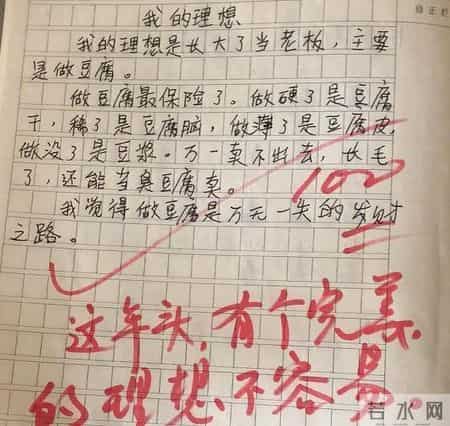 我的理想
我的理想是长大了当老板，主要
是做豆腐。
做豆腐最保险了。做硬了是豆腐
干，稀了是豆腐脑，做薄了是豆腐皮，
做没了是豆浆。万一卖不出去，长毛
了，还能当臭豆腐卖。
我觉得做豆腐是万无一失的发财
之路。
100
这年头，有个完美
的理想不容易。
若水网